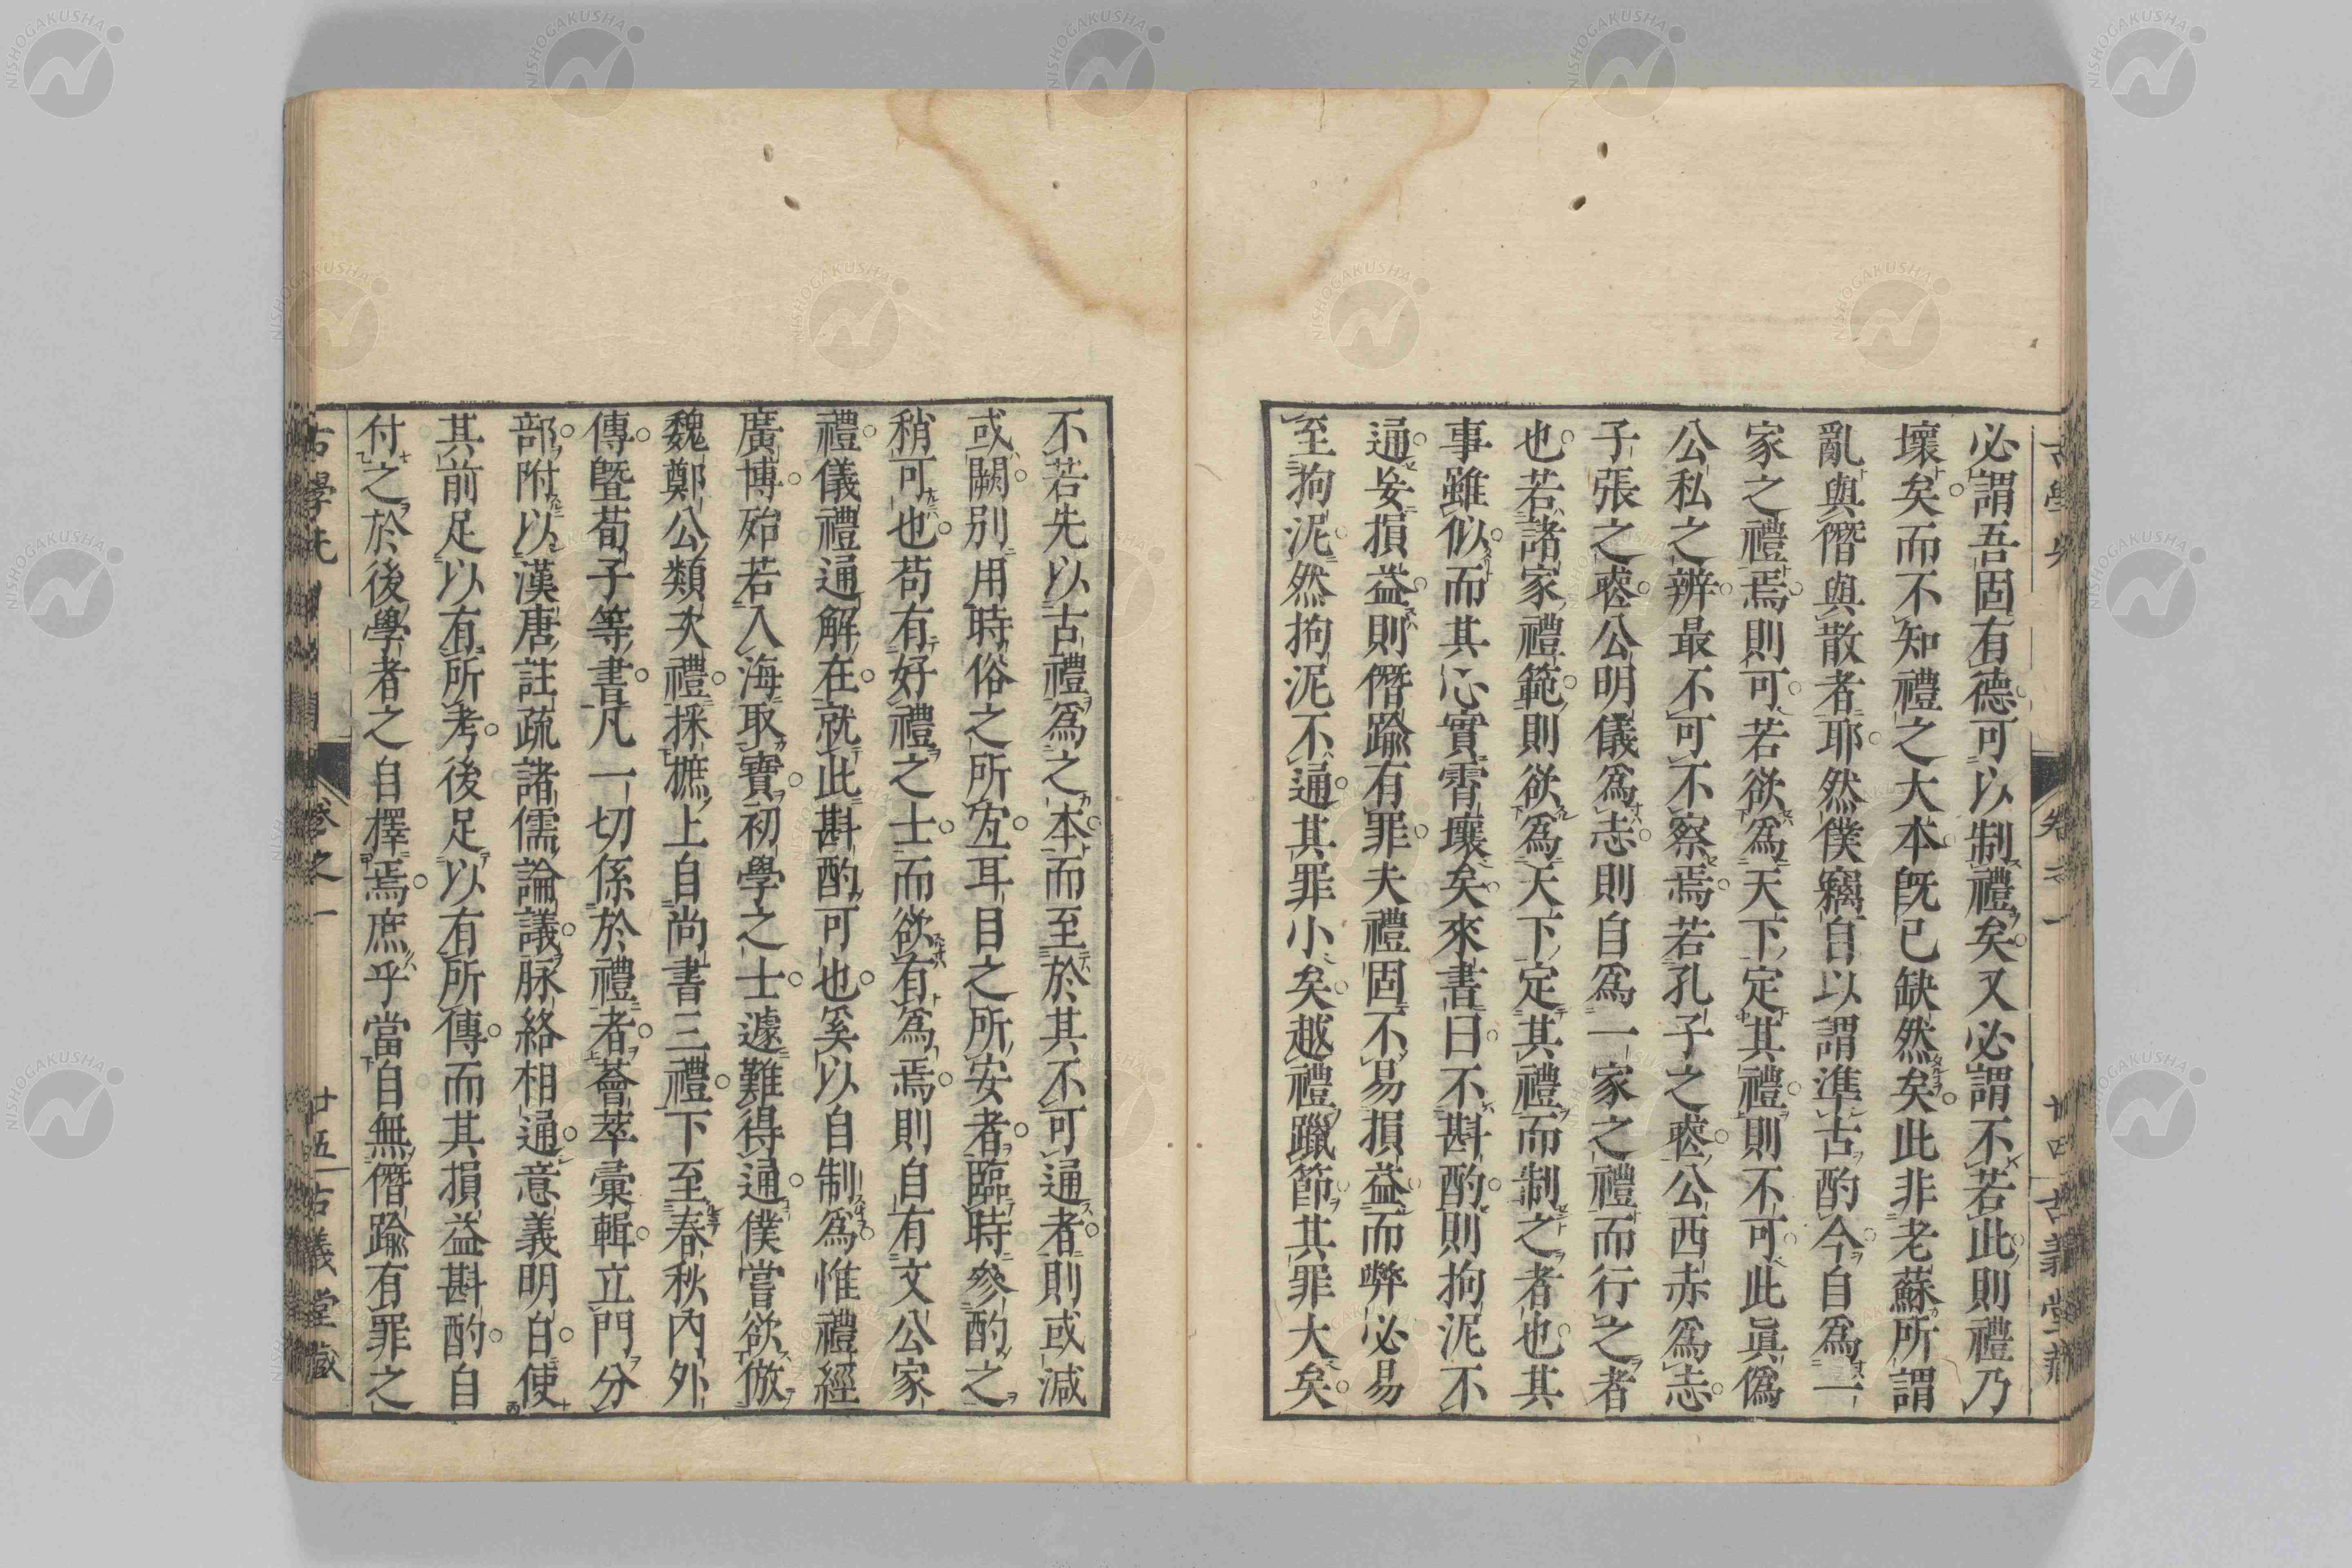 必謂吾固有德可以制禮矣又必謂不若此則禮乃
壞矣而不知禮之大本既已缺然矣此非老蘇所謂
亂與僭與散者耶然僕竊自以謂準古酌今自爲一
家之禮焉則可若欲爲天下定其禮則不可此眞僞
公私之辨最不可不察焉若孔子之㙯公西赤爲志
子張之㙯公明儀爲志則自爲一家之禮而行之者
也若諸家禮範則欲爲天下定其禮而制之者也其
事雖似而其心實霄壤矣來書曰不斟酌則拘泥不
通妄損益則僭踰有罪夫禮固不易損益而弊必易
至拘泥然拘泥不通其罪小矣越禮躐節其罪大矣
不若先以古禮爲之本而至於其不可通者則或減
或闕別用時俗之所宐耳目之所安者臨時參酌之
稍可也苟有好禮之士而欲有爲焉則自有文公家
禮儀禮通解在就此斟酌可也奚以自制爲惟禮經
廣博殆若入海取寶初學之士遽難得通僕嘗欲倣
魏鄭公類次禮採摭上自尚書三禮下至春秋內外
傳曁荀子等書凡一切係於禮者薈萃彙輯立門分
部附以漢唐註疏諸儒論議脉絡相通意義明白使
其前足以有所考後足以有所傳而其損益斟酌自
付之於後學者之自擇焉庶乎當自無僭踰有罪之
卷之一
廿五
古義堂藏